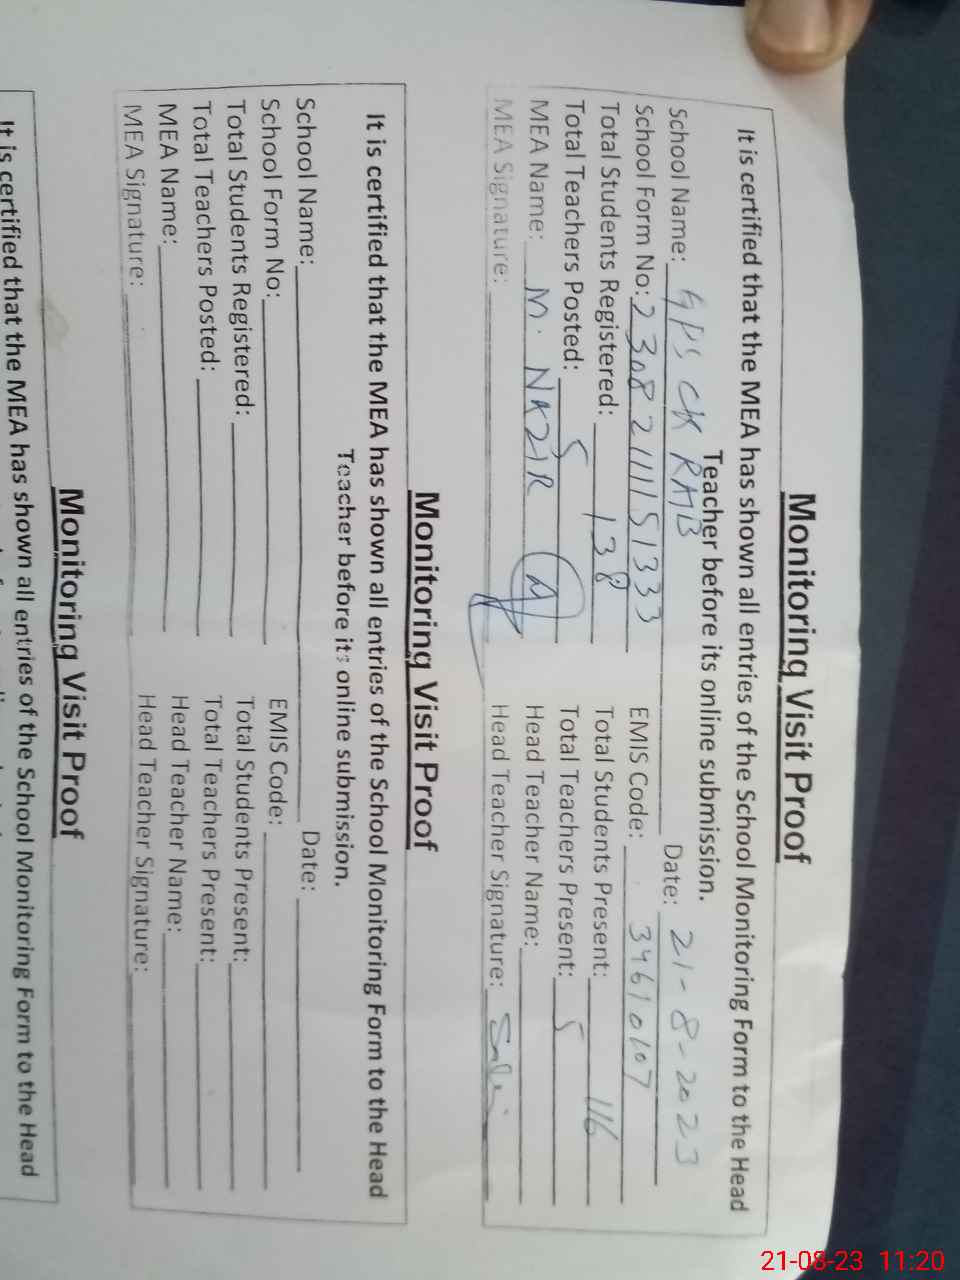 Monitoring Visit Proof
It is certified that the MEA has shown all entries of the School Monitoring Form to the Head
Teacher before its online submission.
School Name: GPS CK RAJB Date: 21-8-2023
School Form No: 23082111151333 EMIS Code: 34610107
Total Students Registered: 138 Total Students Present: 116
Total Teachers Posted: 5 Total Teachers Present: 5
MEA Name: M. NAZIR Head Teacher Name:
MEA Signature: Head Teacher Signature:
Monitoring Visit Proof
It is certified that the MEA has shown all entries of the School Monitoring Form to the Head
Teacher before its online submission.
School Name: Date:
School Form No: EMIS Code:
Total Students Registered: Total Students Present:
Total Teachers Posted: Total Teachers Present:
MEA Name: Head Teacher Name:
MEA Signature: Head Teacher Signature:
Monitoring Visit Proof
It is certified that the MEA has shown all entries of the School Monitoring Form to the Head
21-08-23 11:20